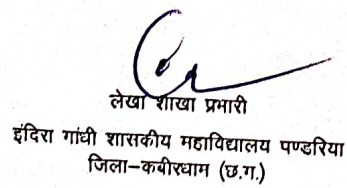 लेखा शाखा प्रभारी
इंदिरा गांधी शासकीय महाविद्यालय पण्डरिया
जिला–कबीरधाम (छ.ग.)